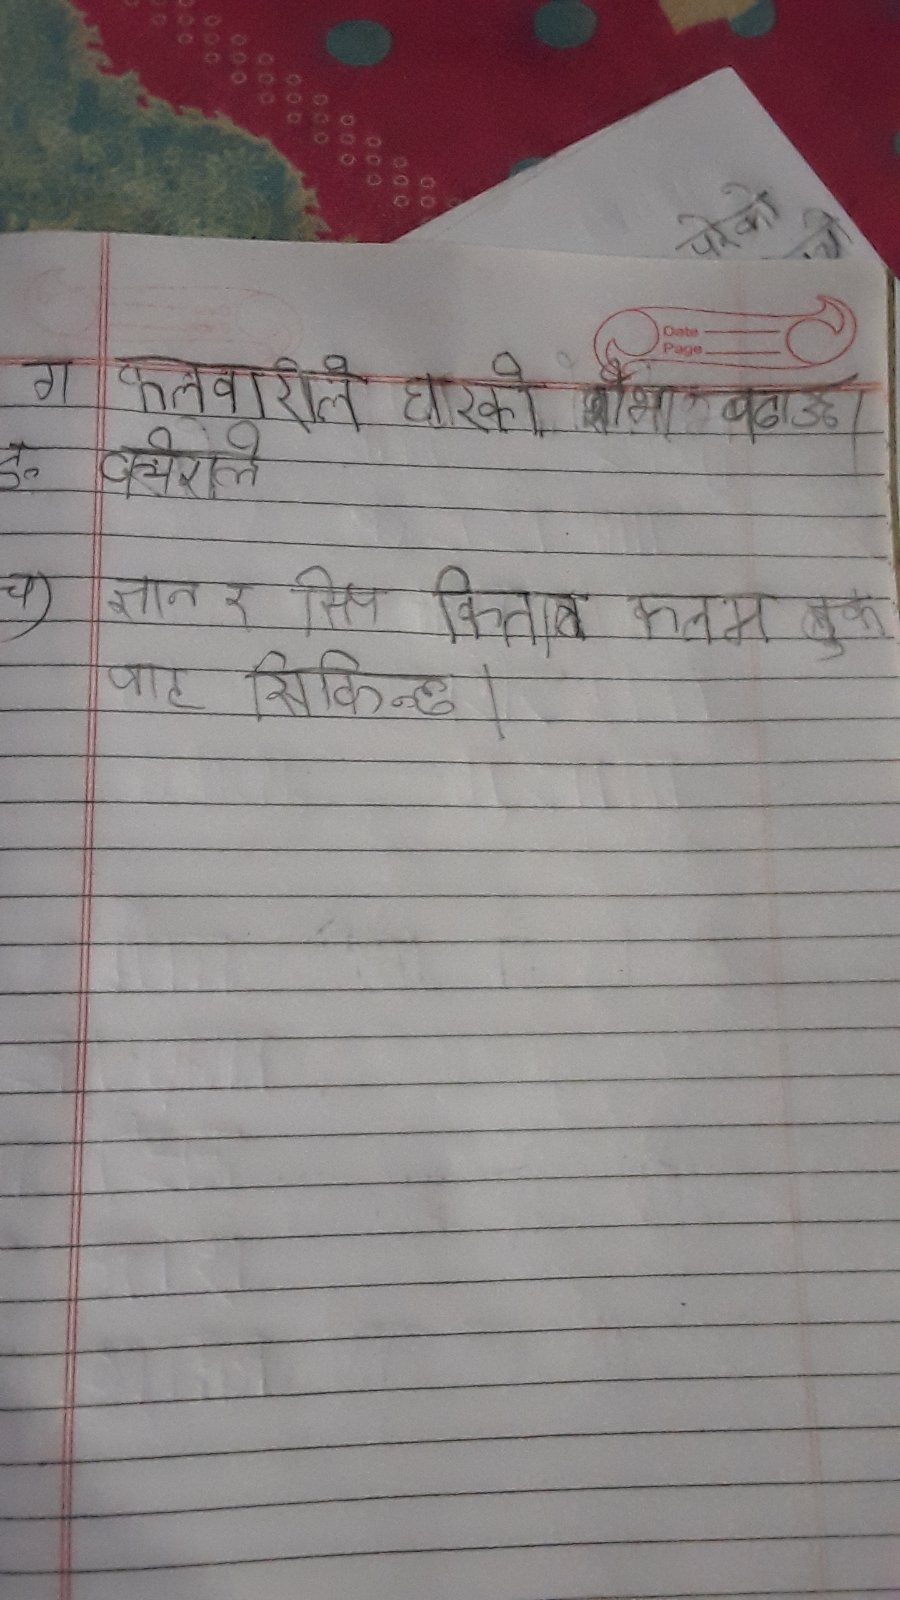 परेको
Date
Page
ग फलवारीले घारको शोभा बढाउछ।
ङ
च) ज्ञान र सिप किताब कलम बुक
बाट सिकिन्छ।